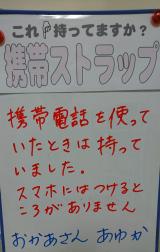 これ持ってますか?
携帯ストラップ
携帯電話を使って
いたときは持って
いました。
スマホにはつけると
ころがありません
おかあさん あゆか